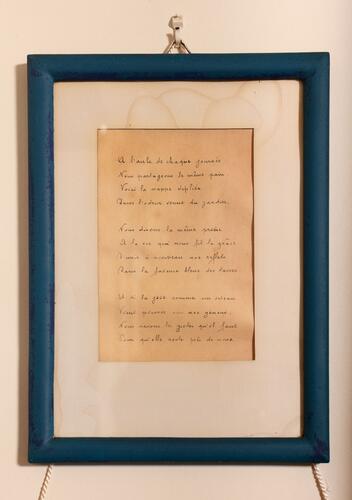 A l'aube de chaque journée
Nous partageons le même pain
Voici la nappe dépliée
Dans l'odeur venue du jardin.
Nous disons la même prière
A la vie qui nous fit la grâce
D'unir à nouveau nos reflets
Dans la faïence bleue des tasses
Et si la joie comme un oiseau
Vient se poser nos genoux
Nous savons le geste qu'il faut
Pour qu'elle reste près de nous